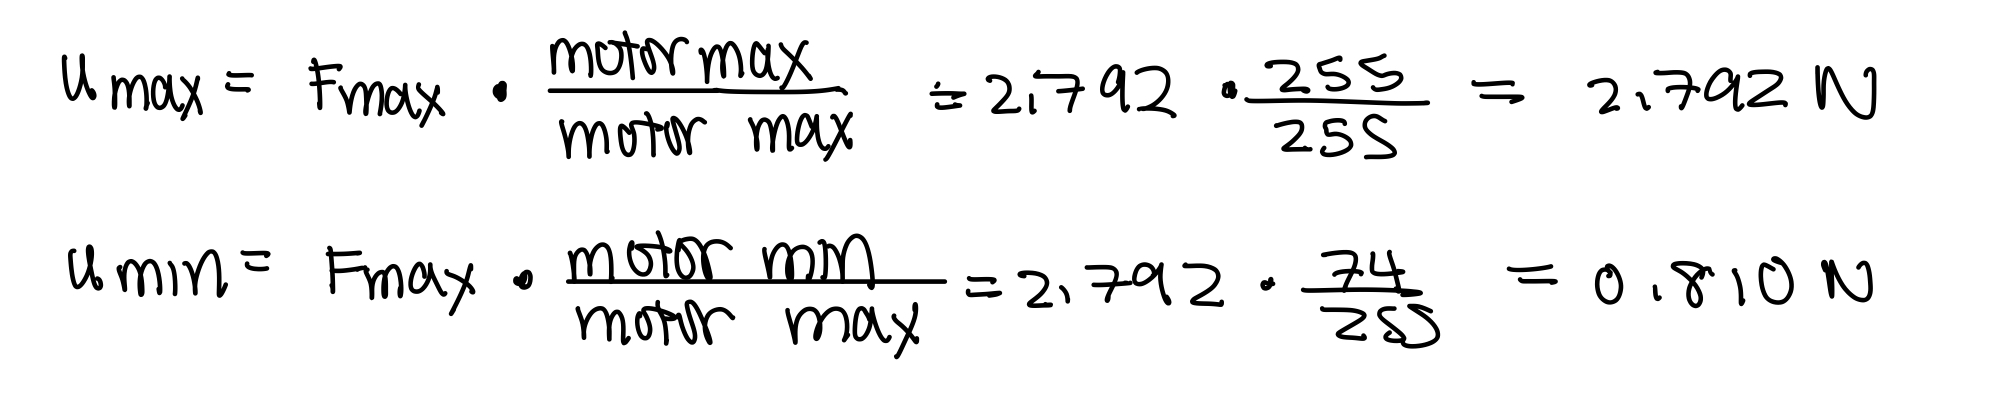 u max = Fmax · motor max / motor max = 2.792 · 255 / 255 = 2.792 N
u min = Fmax · motor min / motor max = 2.792 · 74 / 255 = 0.810 N